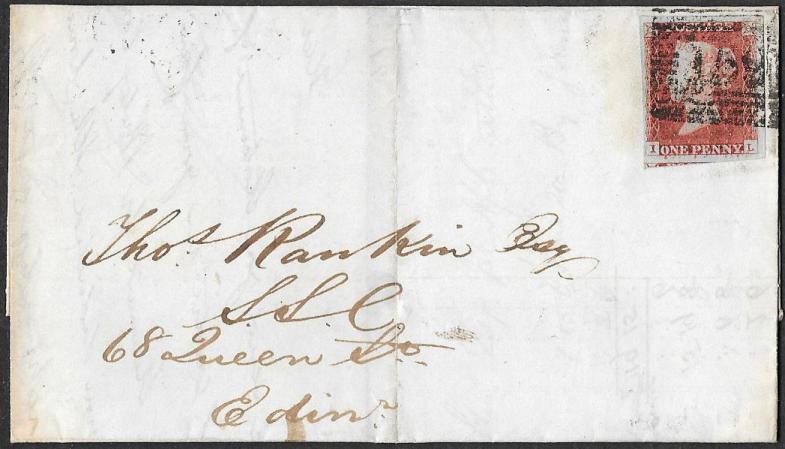 POSTAGE
I ONE PENNY L
Thos Rankin Esqr
SSC
68 Queen St
Edinr